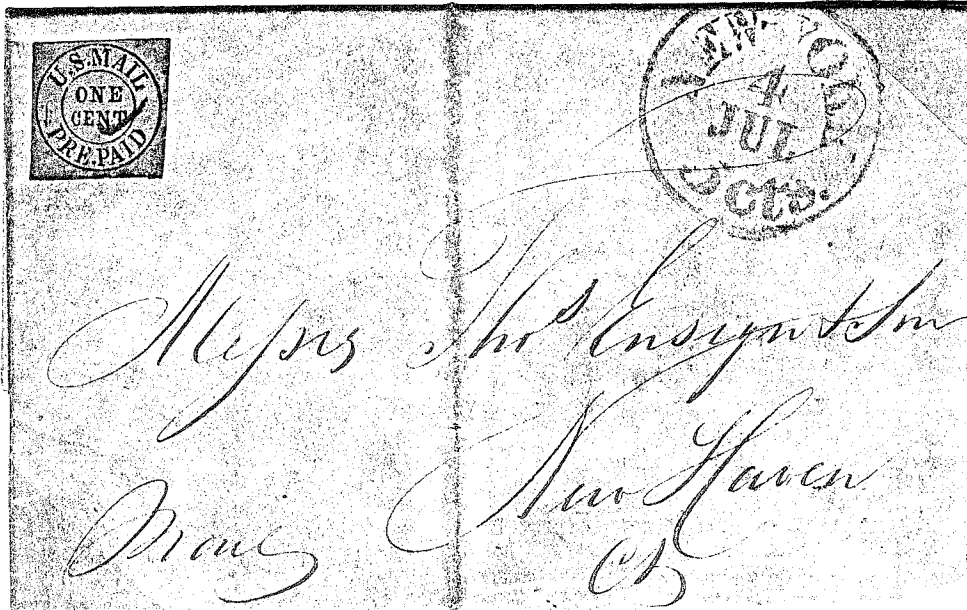 U.S. MAIL
ONE
CENT
PRE.PAID
NEW-YORK
4
JUL
5cts.
Messrs Thos Ensign & Son
New Haven
Ct